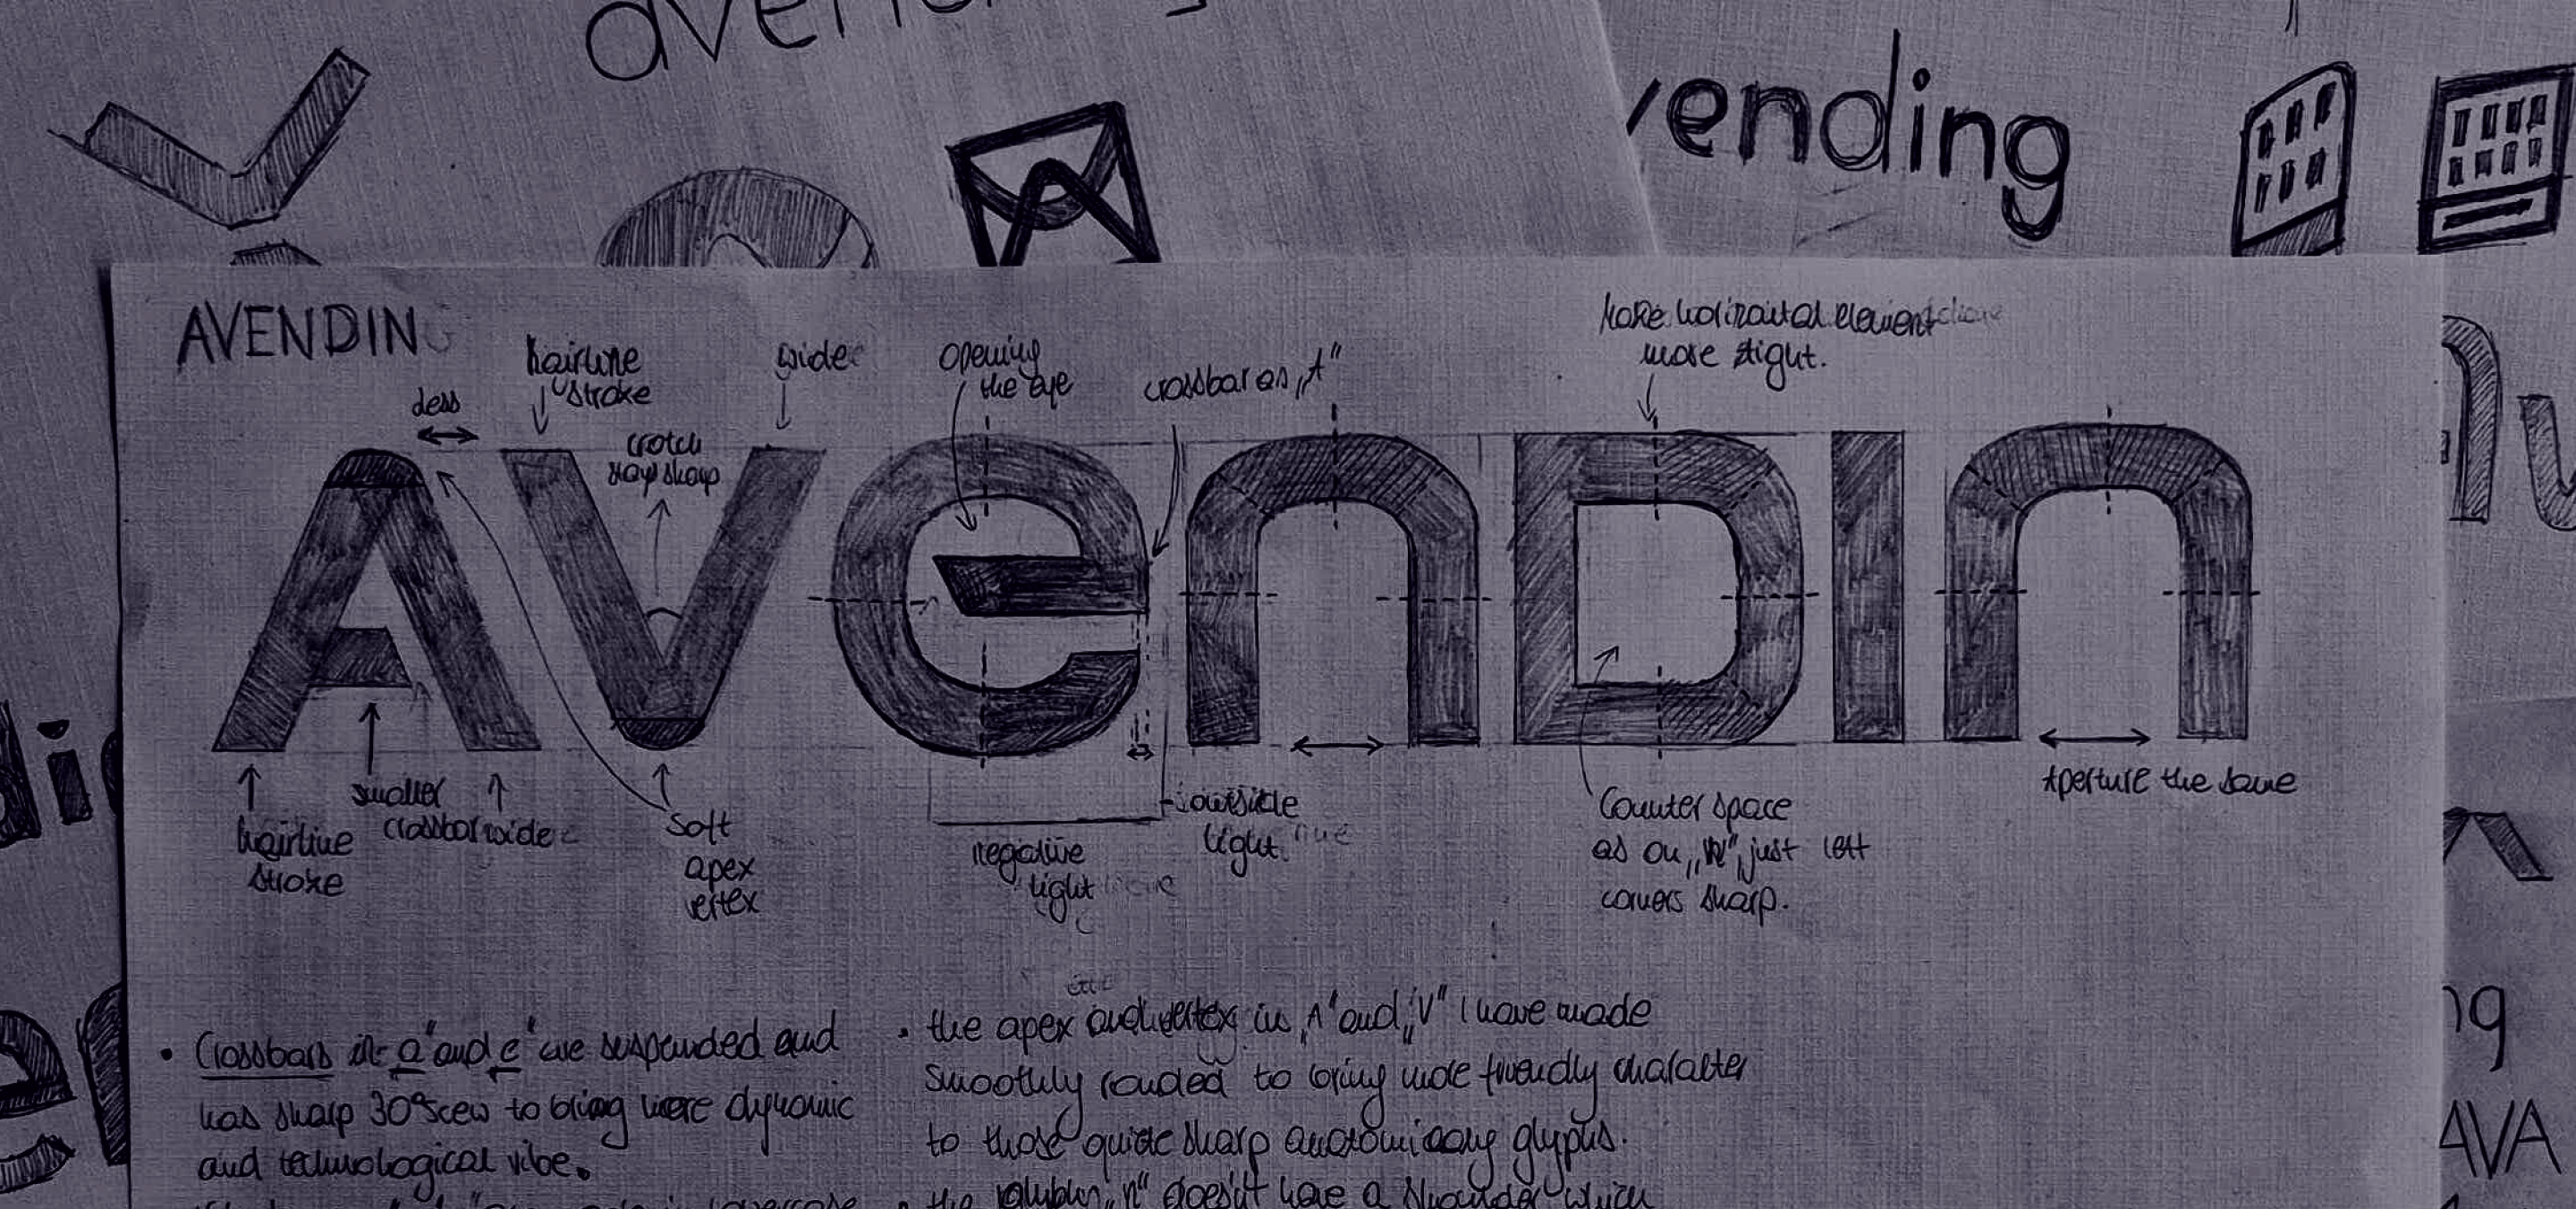 vending
AVENDING
hairline
stroke
wide
opening
the eye
crossbar as „A"
Make horizontal element
more stight.
less
crotch
stay sharp
AVenDIn
hairline
stroke
smaller
crossbar
wide
soft
apex
vertex
negative
light
outside
light
Counter space
as on „n", just left
corners sharp.
Aperture the same
• Crossbars in „a" and „e" are suspended and
has sharp 30° scew to bring more dynamic
and technological vibe.
• the apex and vertex in „A" and „V" I have made
smoothly rouded to bring more friendly character
to those quite sharp glyphs.
• the „n" doesn't have a shoulder which
AVA